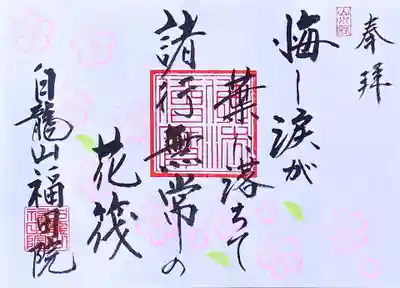 奉拝
悔し涙が
葉に落ちて
諸行無常の
花筏
白龍山福田院